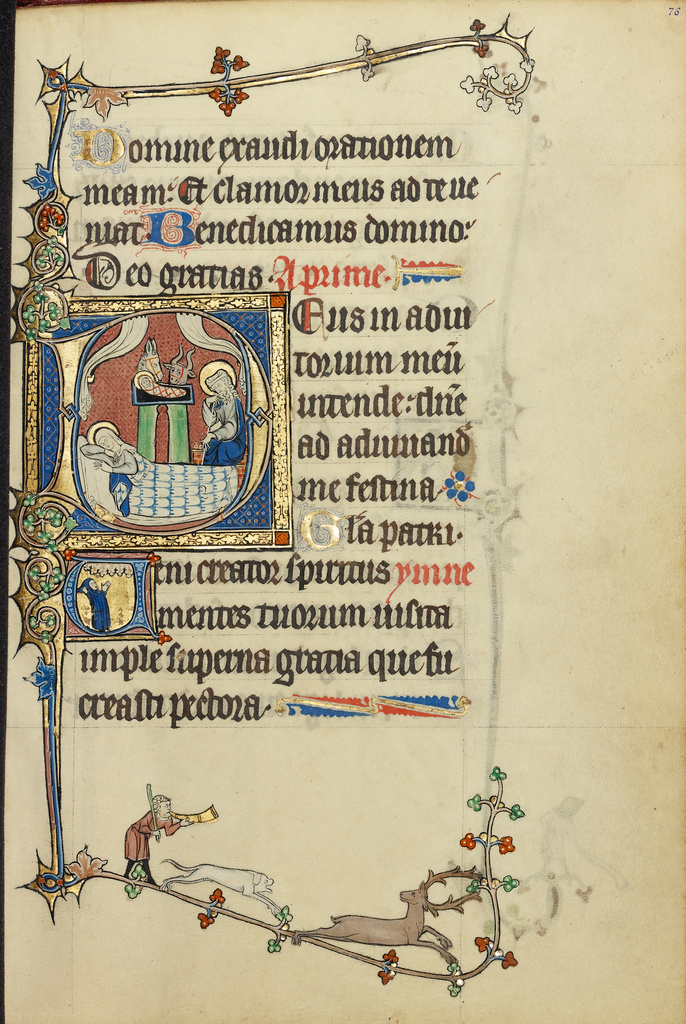 76
Domine exaudi orationem
meam: Et clamor meus ad te ue
niat Benedicamus domino:
Deo gratias. A prime.
Eus in adiu
torium meū
intende: dn̄e
ad adiuuand̄
me festina
Gl̄a patri.
Veni creator spiritus ymne
mentes tuorum uisita
imple superna gratia que tu
creasti pectora.